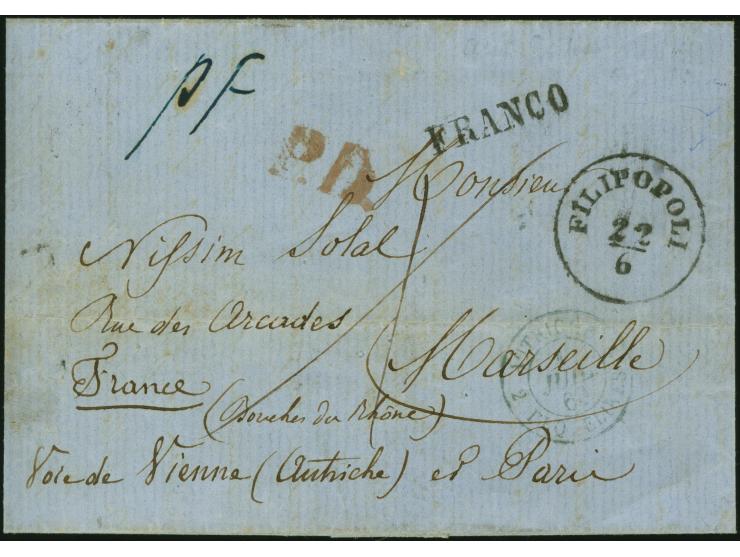 PF
FRANCO
P.D.
Monsieur
FILIPOPOLI
22
6
Nissim Solal
Rue des Arcades
Marseille
France
(Bouches du Rhône)
Voie de Vienne (Autriche) et Paris